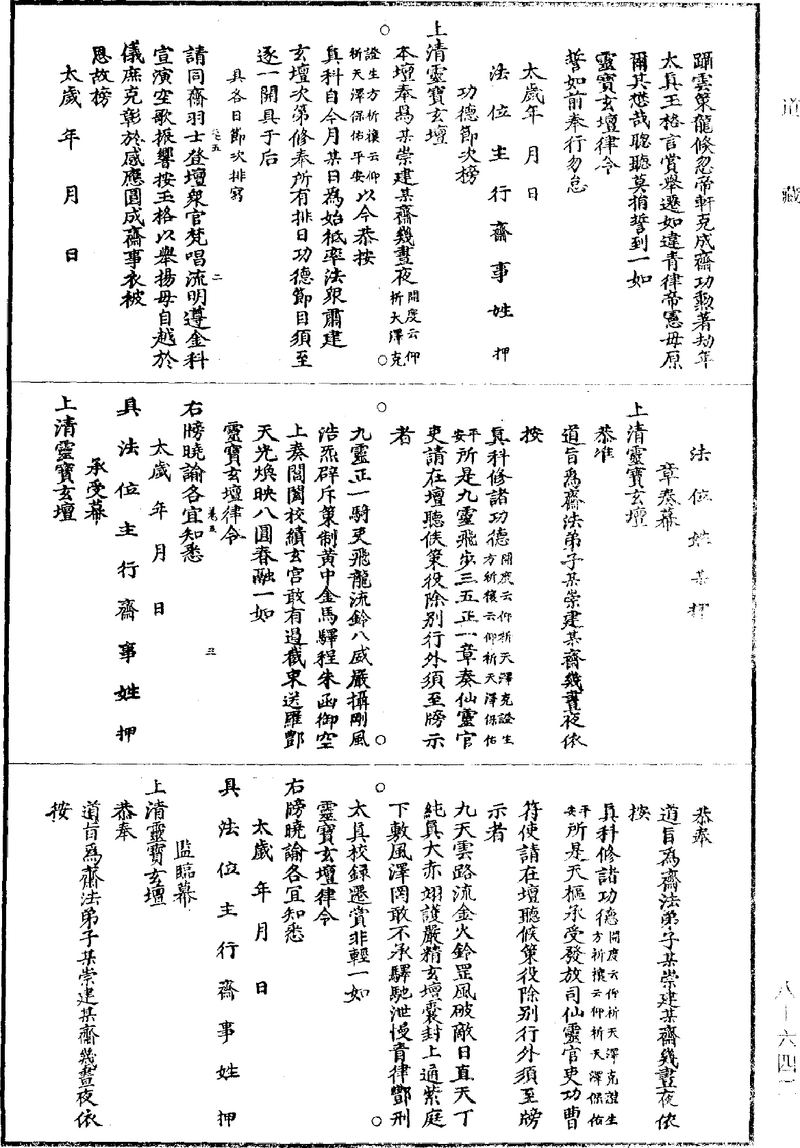 道藏
躡雲策龍倏忽帝軒克成齋功勳著劫年
太真玉格言賞舉遷如違青律帝憲毋原
爾其懋哉聰聽莫捐誓到一如
靈寶玄壇律令
誓如前奉行勿怠
太歲年月日
法位主行齋事姓押
功德節次榜
上清靈寶玄壇
本壇奉爲某崇建某齋幾晝夜開度云仰祈天澤克
證生方祈禳云仰祈天澤保佑平安以今恭按
真科自今月某日爲始祗率法眾肅建
玄壇次第修奉所有排日功德節目須至
逐一開具于后
具各日節次排寫
請同齋羽士登壇衆官梵唱流明遵金科
宣演空歌振響按玉格以舉揚毋自越於
儀庶克彰於感應圓成齋事衣被
恩故榜
太歲年月日
卷五 二
法位姓某押
章奏幕
上清靈寶玄壇
恭准
道旨爲齋法弟子某崇建某齋幾晝夜依
按
真科修諸功德開度云仰祈天澤克證生方祈禳云仰祈天澤保佑
平安所是九靈飛步三五正一章奏仙靈官
吏請在壇聽候策役除別行外須至牓示
者
九靈正一騎吏飛龍流鈴八威嚴攝剛風
浩炁辟斥策制黃中金馬驛程朱函御空
上奏閶闔校績玄宮敢有過截束送羅酆
天光煥映八圓春融一如
靈寶玄壇律令
右牓曉諭各宜知悉
太歲年月日
具法位主行齋事姓押
承受幕
上清靈寶玄壇
卷五 三
恭奉
道旨爲齋法弟子某崇建某齋幾晝夜依
按
真科修諸功德開度云仰祈天澤克證生方祈禳云仰祈天澤保佑
平安所是天樞承受發放司仙靈官吏功曹
符使請在壇聽候策役除別行外須至牓
示者
九天雲路流金火鈴罡風破敵日直天丁
純真大赤翊護嚴精玄壇囊封上通紫庭
下敷風澤罔敢不承驛馳泄慢青律酆刑
太真校錄遷賞非輕一如
靈寶玄壇律令
右牓曉諭各宜知悉
太歲年月日
具法位主行齋事姓押
監臨幕
上清靈寶玄壇
恭奉
道旨爲齋法弟子某崇建某齋幾晝夜依
按